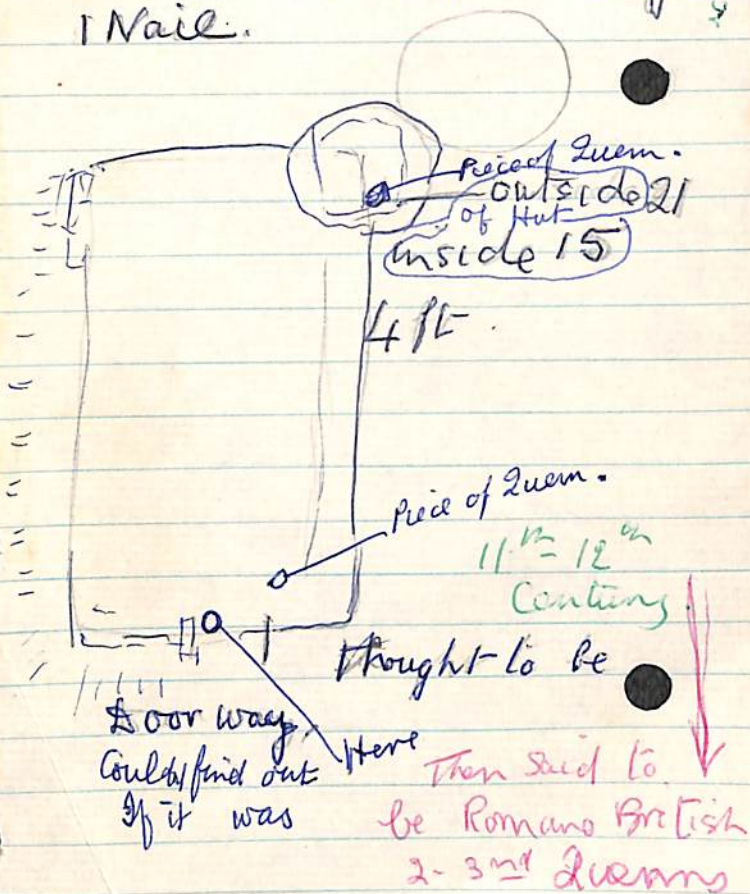 1 Nail.
Piece of Quern.
outside 21
of Hut
inside 15
4 ft.
Piece of Quern.
11th - 12th
Century
Thought to be
Doorway
Here
find out
If it was
Then Said to
be Romano British
2-3rd Querns